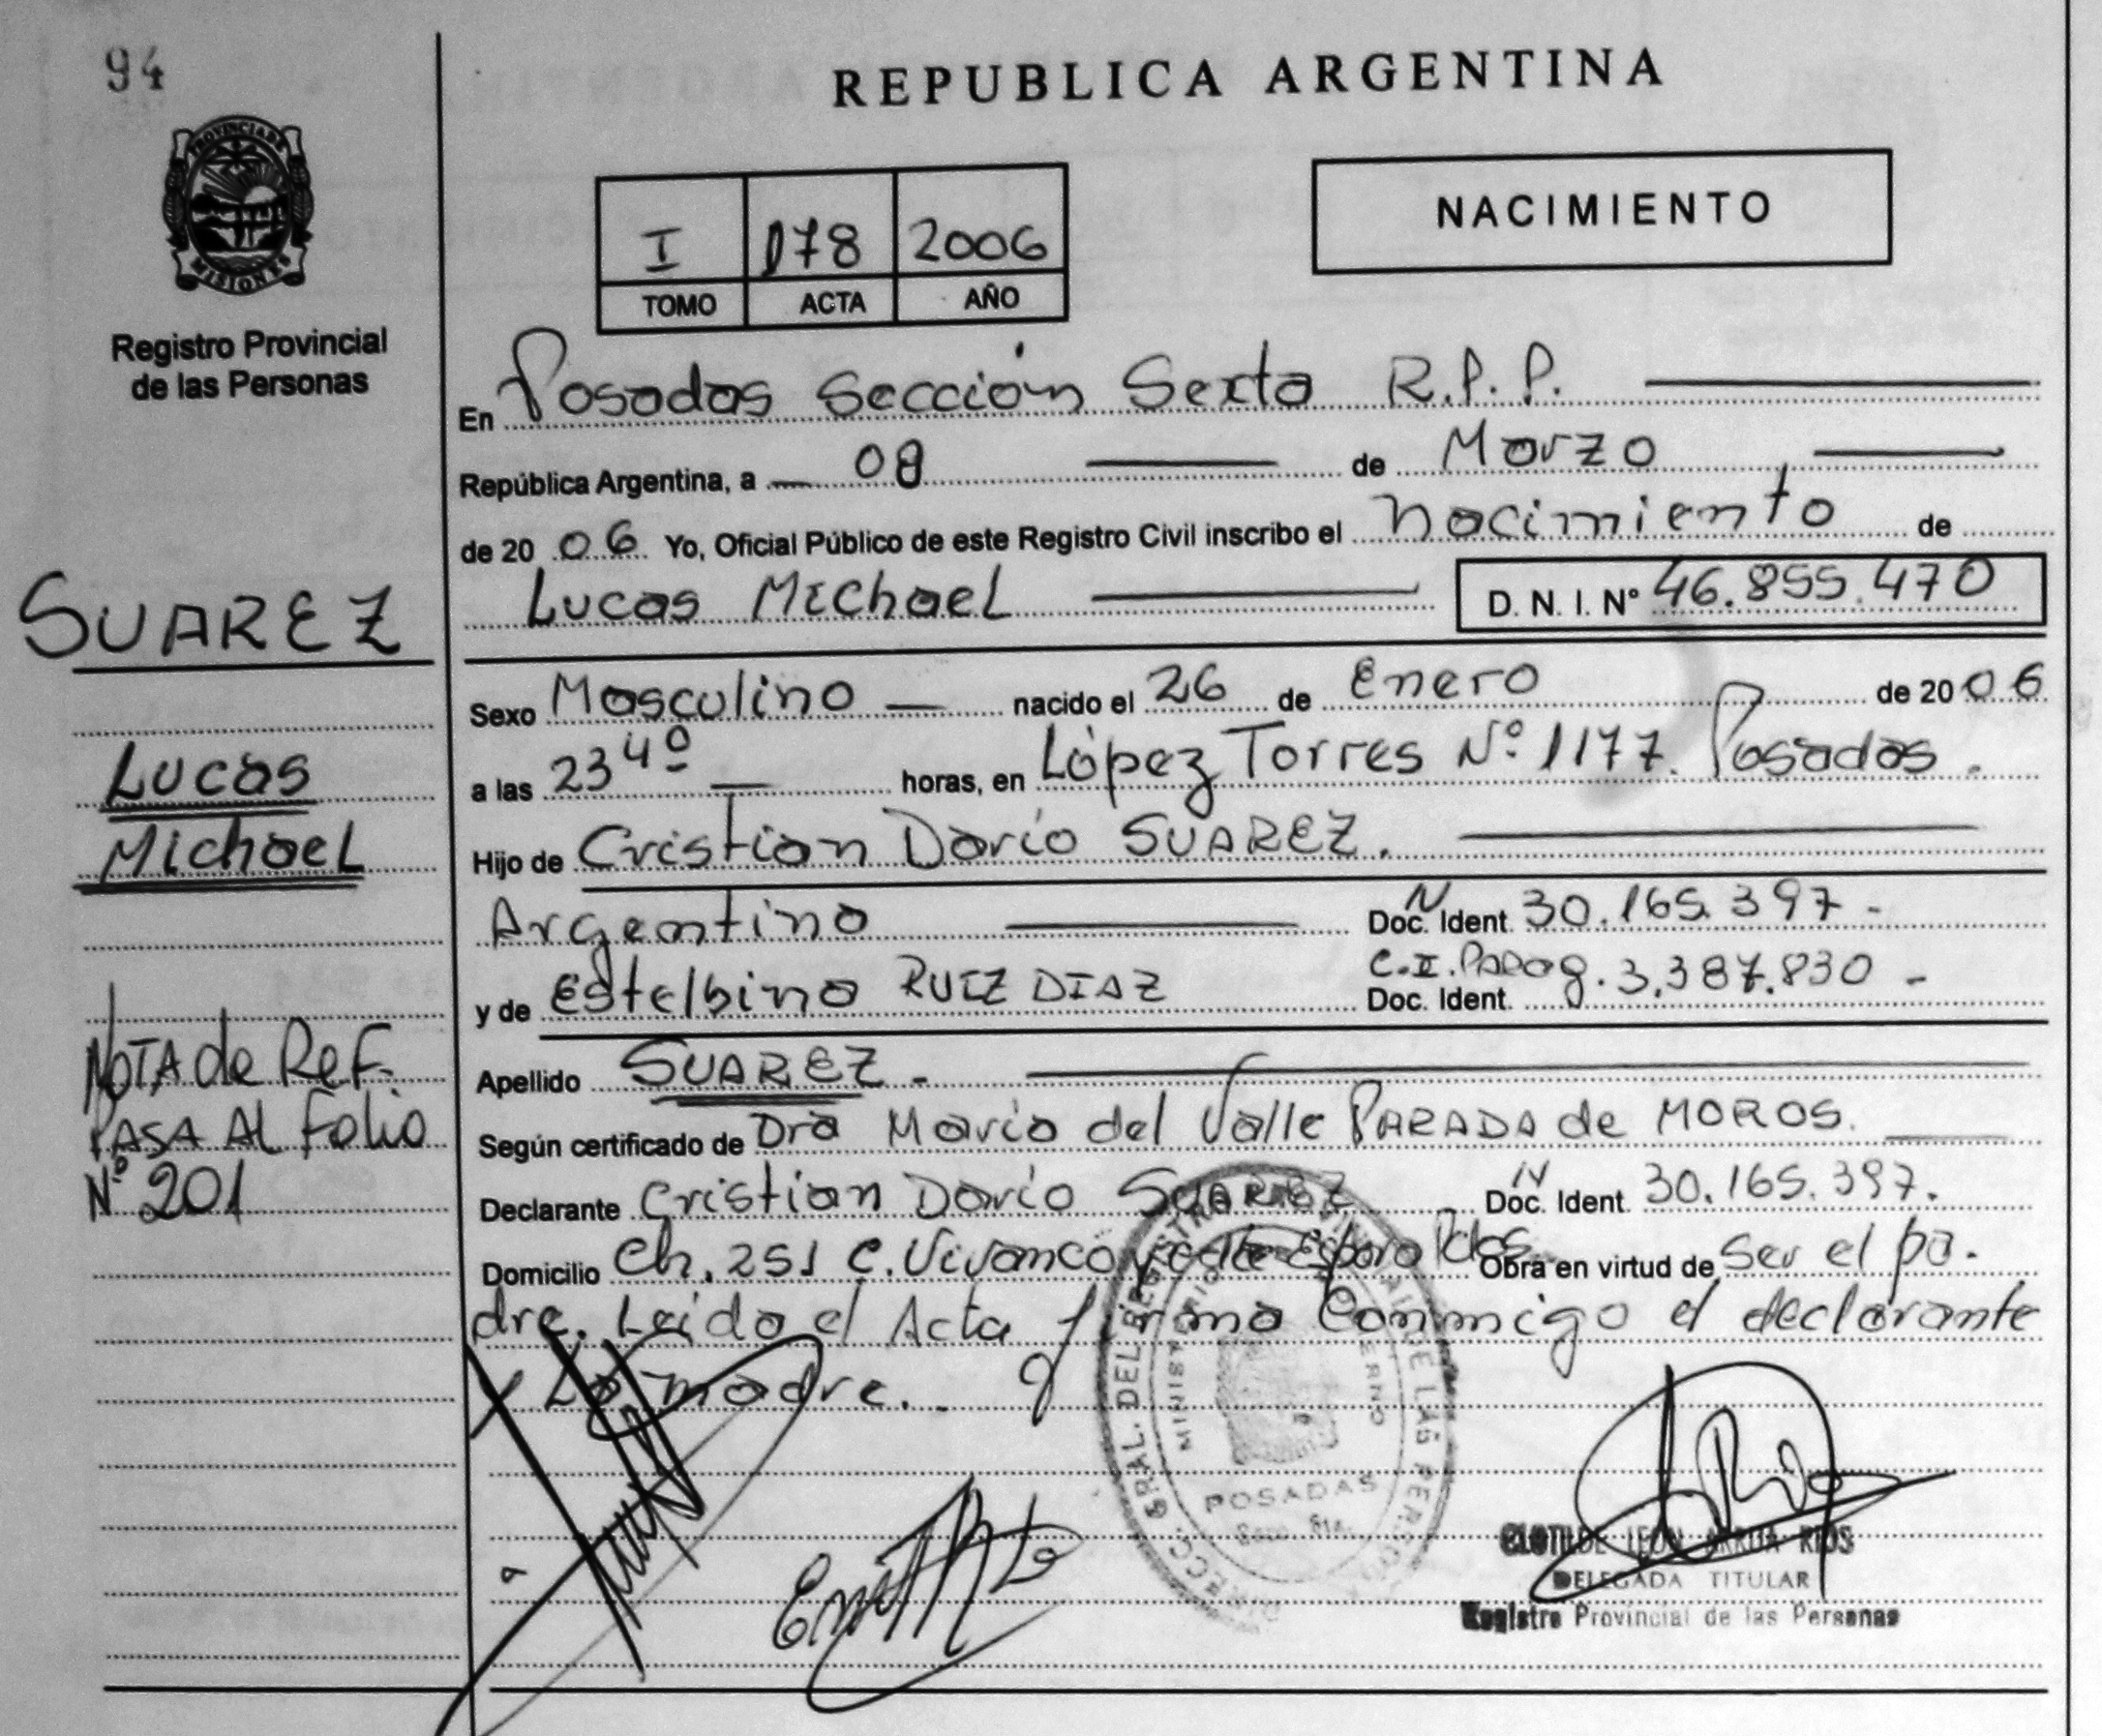 94
REPUBLICA ARGENTINA
PROVINCIA DE
MISIONES
Registro Provincial
de las Personas
I 178 2006
TOMO ACTA AÑO
NACIMIENTO
En Posadas Sección Sexta R.P.P.
República Argentina, a 08 de Marzo
de 2006 Yo, Oficial Público de este Registro Civil inscribo el Nacimiento de
Lucas Michael D. N. I. Nº 46.855.470
SUAREZ
Lucas
Michael
Sexo Masculino nacido el 26 de Enero de 2006
a las 23 40 horas, en López Torres Nº 1177. Posadas.
Hijo de Cristian Darío SUAREZ.
Argentino N Doc. Ident. 30.165.397-
y de Estelbina RUIZ DIAZ C.I. Parag. Doc. Ident. 3.387.830-
Apellido SUAREZ.-
Según certificado de Dra María del Valle PARADA de MOROS.
Declarante Cristian Darío SUAREZ N Doc. Ident. 30.165.397.
Domicilio Ch. 251 C. Vivanco y Obra en virtud de ser el pa-
dre. Leido el Acta firma conmigo el declarante
y La madre.
NOTA de Ref.
PASA AL Folio
Nº 201
DIRECC. GRAL. DEL REGISTRO PROVINCIAL DE LAS PERSONAS
POSADAS
CLOTILDE LEON ARRUA RIOS
DELEGADA TITULAR
Registro Provincial de las Personas